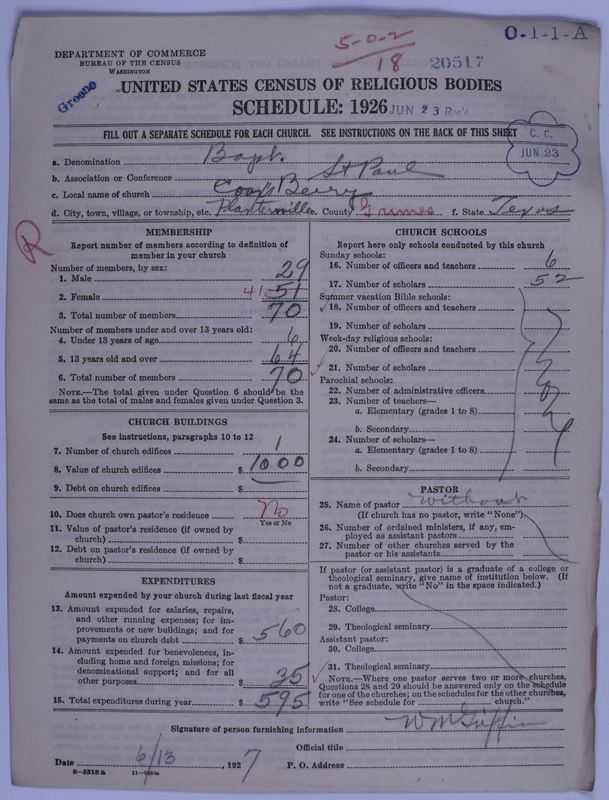 O-1-1-A
5-0-2
18
20517
DEPARTMENT OF COMMERCE
BUREAU OF THE CENSUS
WASHINGTON
Greene
UNITED STATES CENSUS OF RELIGIOUS BODIES
SCHEDULE: 1926
JUN 23
FILL OUT A SEPARATE SCHEDULE FOR EACH CHURCH. SEE INSTRUCTIONS ON THE BACK OF THIS SHEET
C. C.
JUN 23
a. Denomination Bapt.
b. Association or Conference St Paul
c. Local name of church Berry
d. City, town, village, or township, etc. Plantersville e. County Grimes f. State Texas
R
MEMBERSHIP
Report number of members according to definition of
member in your church
Number of members, by sex:
1. Male 29
2. Female 41 51
3. Total number of members 70
Number of members under and over 13 years old:
4. Under 13 years of age 6
5. 13 years old and over 64
6. Total number of members 70
NOTE.—The total given under Question 6 should be the
same as the total of males and females given under Question 3.
CHURCH BUILDINGS
See instructions, paragraphs 10 to 12
7. Number of church edifices 1
8. Value of church edifices $ 1000
9. Debt on church edifices $
10. Does church own pastor's residence No
Yes or No
11. Value of pastor's residence (if owned by
church) $
12. Debt on pastor's residence (if owned by
church) $
EXPENDITURES
Amount expended by your church during last fiscal year
13. Amount expended for salaries, repairs,
and other running expenses; for im-
provements or new buildings; and for
payments on church debt $ 560
14. Amount expended for benevolences, in-
cluding home and foreign missions; for
denominational support; and for all
other purposes $ 35
15. Total expenditures during year $ 595
CHURCH SCHOOLS
Report here only schools conducted by this church
Sunday schools:
16. Number of officers and teachers 6
17. Number of scholars 52
Summer vacation Bible schools:
18. Number of officers and teachers
19. Number of scholars
Week-day religious schools:
20. Number of officers and teachers
21. Number of scholars
Parochial schools:
22. Number of administrative officers
23. Number of teachers—
a. Elementary (grades 1 to 8)
b. Secondary
24. Number of scholars—
a. Elementary (grades 1 to 8)
b. Secondary
PASTOR
25. Name of pastor without
(If church has no pastor, write "None")
26. Number of ordained ministers, if any, em-
ployed as assistant pastors
27. Number of other churches served by the
pastor or his assistants
If pastor (or assistant pastor) is a graduate of a college or
theological seminary, give name of institution below. (If
not a graduate, write "No" in the space indicated.)
Pastor:
28. College
29. Theological seminary
Assistant pastor:
30. College
31. Theological seminary
NOTE.—Where one pastor serves two or more churches,
Questions 28 and 29 should be answered only on the schedule
for one of the churches; on the schedules for the other churches,
write "See schedule for church."
Signature of person furnishing information Wm Griffin
Official title
Date 6/13, 1927 P. O. Address
8-5518 a